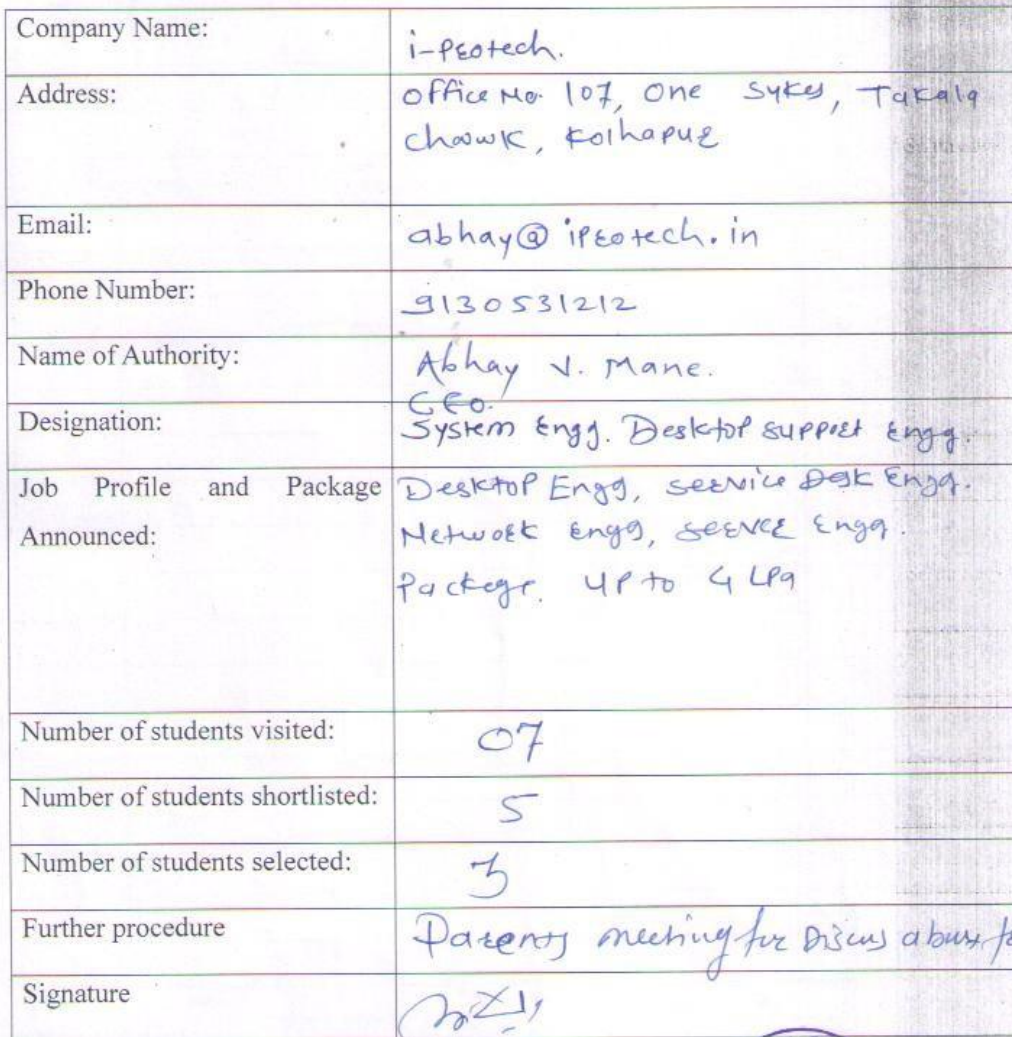 Company Name: i-protech.
Address: Office No. 107, One Sykes, Takala
Chowk, Kolhapur
Email: abhay@iprotech.in
Phone Number: 9130531212
Name of Authority: Abhay V. Mane.
CEO.
Designation: System Engg. Desktop support Engg.
Job Profile and Package Desktop Engg, service Desk Engg.
Announced: Network Engg, server Engg.
Package. up to 4 LPa
Number of students visited: 07
Number of students shortlisted: 5
Number of students selected: 3
Further procedure Parents meeting for Discus
Signature